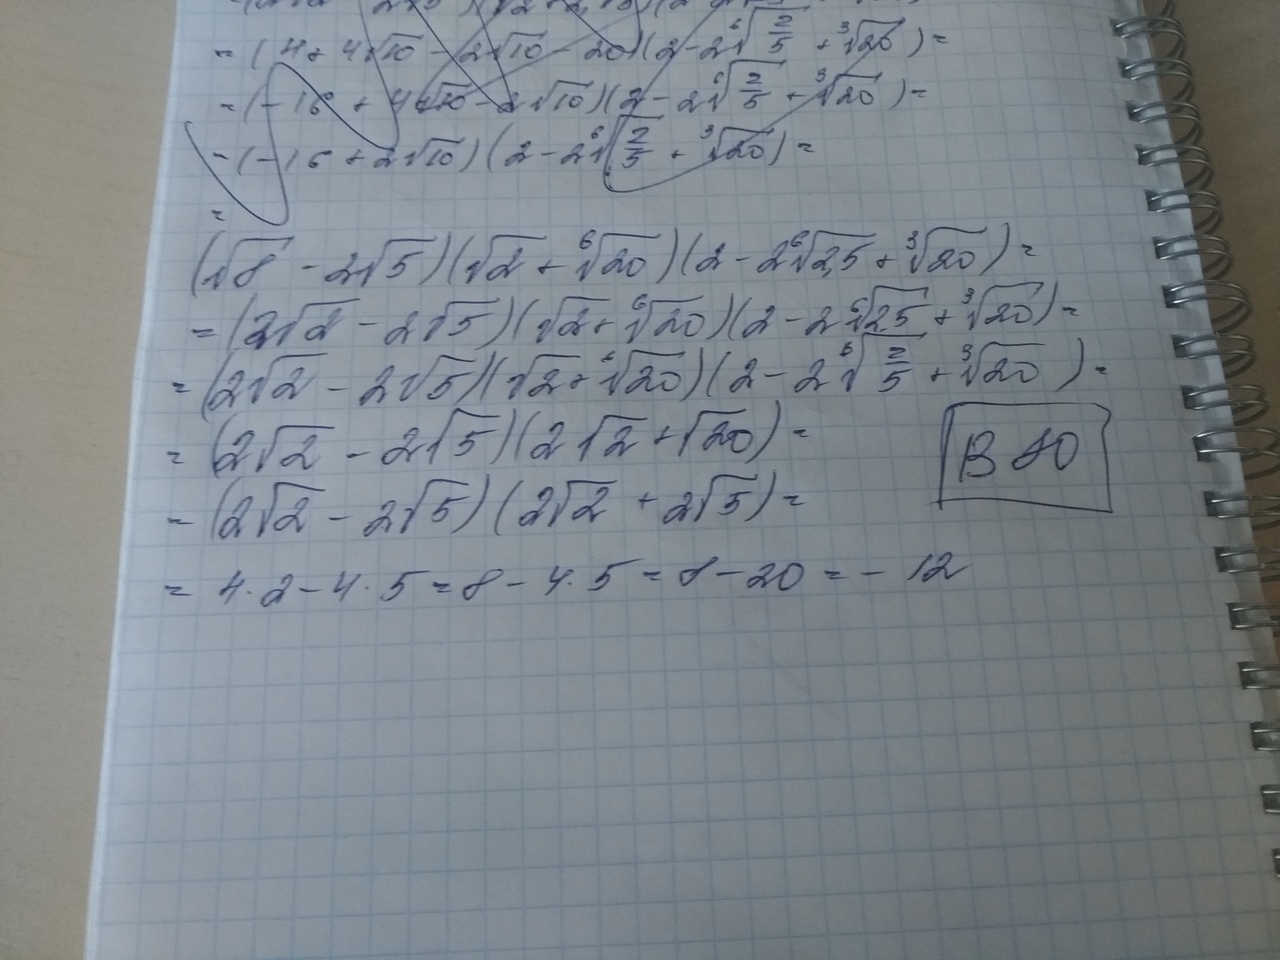 = (4 + 4√10 - 2√10 - 20)(2 - 2⁶√(2/5) + ³√20) =
= (-16 + 4√10 - 2√10)(2 - 2⁶√(2/5) + ³√20) =
= (-16 + 2√10)(2 - 2⁶√(2/5) + ³√20) =
=
(√8 - 2√5)(√2 + ⁶√20)(2 - 2⁶√2,5 + ³√20) =
= (2√2 - 2√5)(√2 + ⁶√20)(2 - 2⁶√2,5 + ³√20) =
= (2√2 - 2√5)(√2 + ⁶√20)(2 - 2⁶√(2/5) + ³√20) =
= (2√2 - 2√5)(2√2 + √20) =
= (2√2 - 2√5)(2√2 + 2√5) =
B 10
= 4·2 - 4·5 = 8 - 4·5 = 8 - 20 = -12